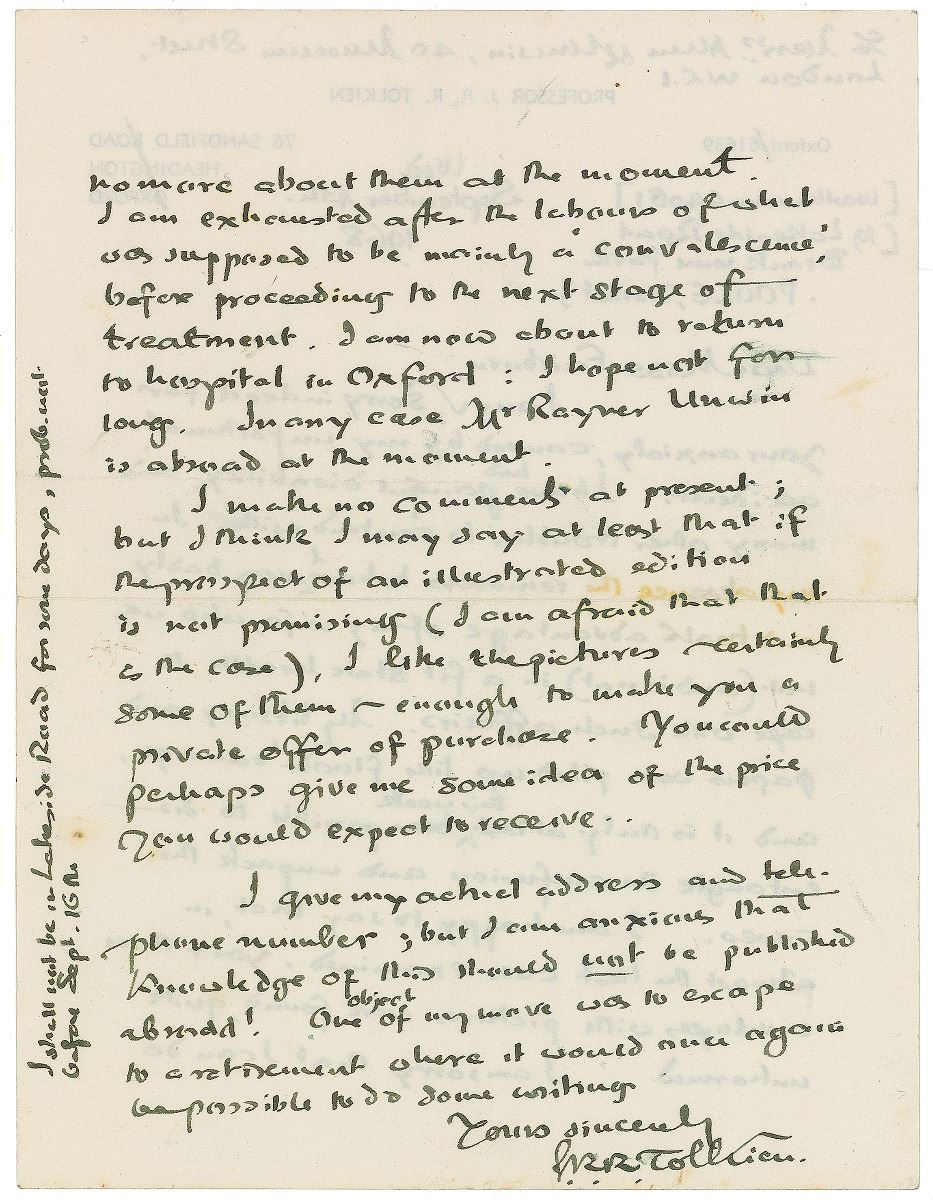 no more about them at the moment.
I am exhausted after the labours of what
was supposed to be mainly a 'convalescence',
before proceeding to the next stage of
treatment. I am now about to return
to hospital in Oxford : I hope not for
long. In any case Mr Rayner Unwin
is abroad at the moment.
I make no comments at present ;
but I think I may say at least that if
the prospect of an illustrated edition
is not promising (I am afraid that that
is the case), I like the pictures ~ certainly
some of them ~ enough to make you a
private offer of purchase. You could
perhaps give me some idea of the price
you would expect to receive ..
I give my actual address and tele-
phone number , but I am anxious that
knowledge of this should not be published
abroad! One object of my move was to escape
to a retirement where it would once again
be possible to do some writing
Yours sincerely
J.R.R. Tolkien.
I shall not be in Lakeside Road for some days, prob. not
before Sept. 16th
PROFESSOR J. R. R. TOLKIEN
76 SANDFIELD ROAD
HEADINGTON
OXFORD
Oxford/61639